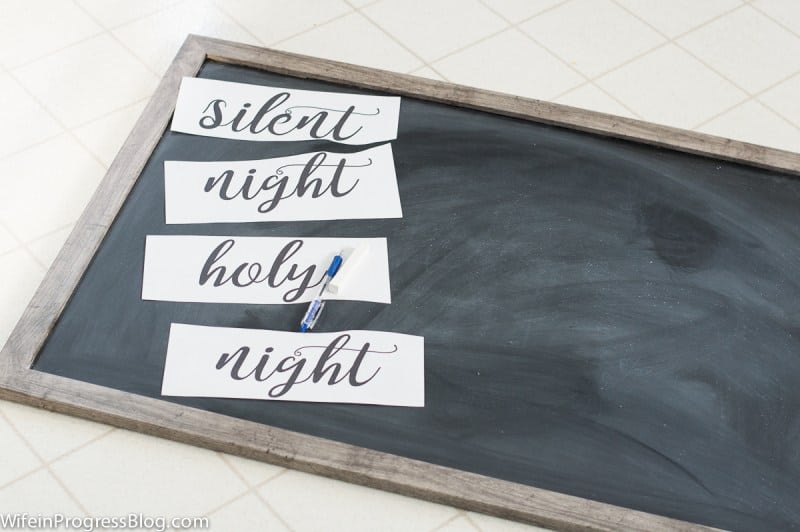 silent
night
holy
night
WifeinProgressBlog.com